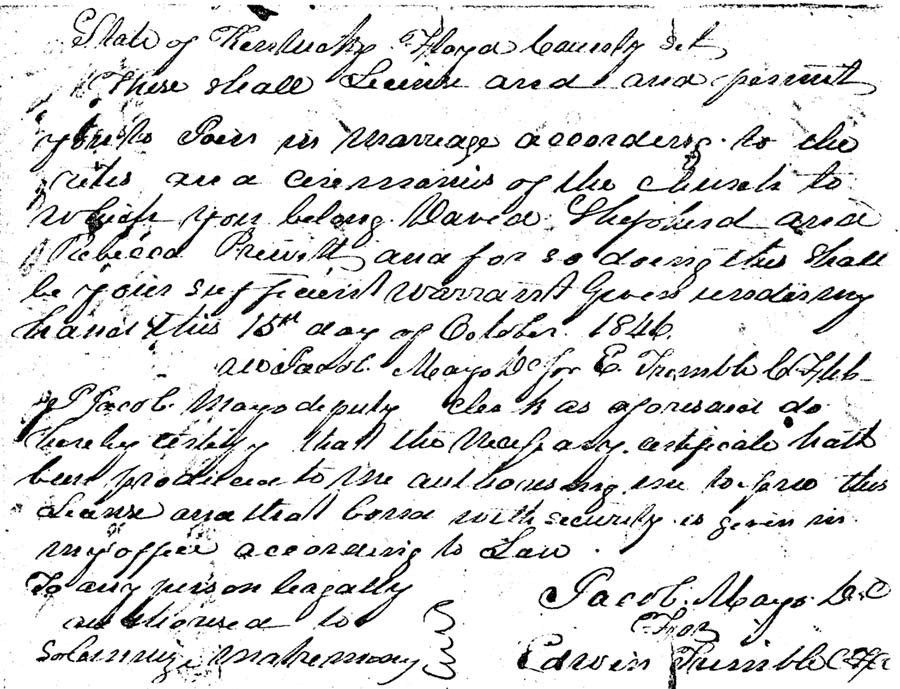 State of Kentucky Floyd County Sct
These shall License and and permit
you to Join in Marriage according to the
rites and ceremonies of the church to
which you belong David Shepherd and
Rebecca Prewitt and for so doing this shall
be your sufficient warrant Given under my
hand this 15th day of October 1846.
Jacob Mayo DC for E. Trimble C.F.C.
I Jacob Mayo deputy Clerk as aforesaid do
hereby certify that the necessary certificate hath
been produced to me authorising me to this
License and that bond with security is given in
my office according to Law.
To any person leagally
authorised to
Solemnize matrimony
Jacob. Mayo D.C
For
Edwin Trimble CFC